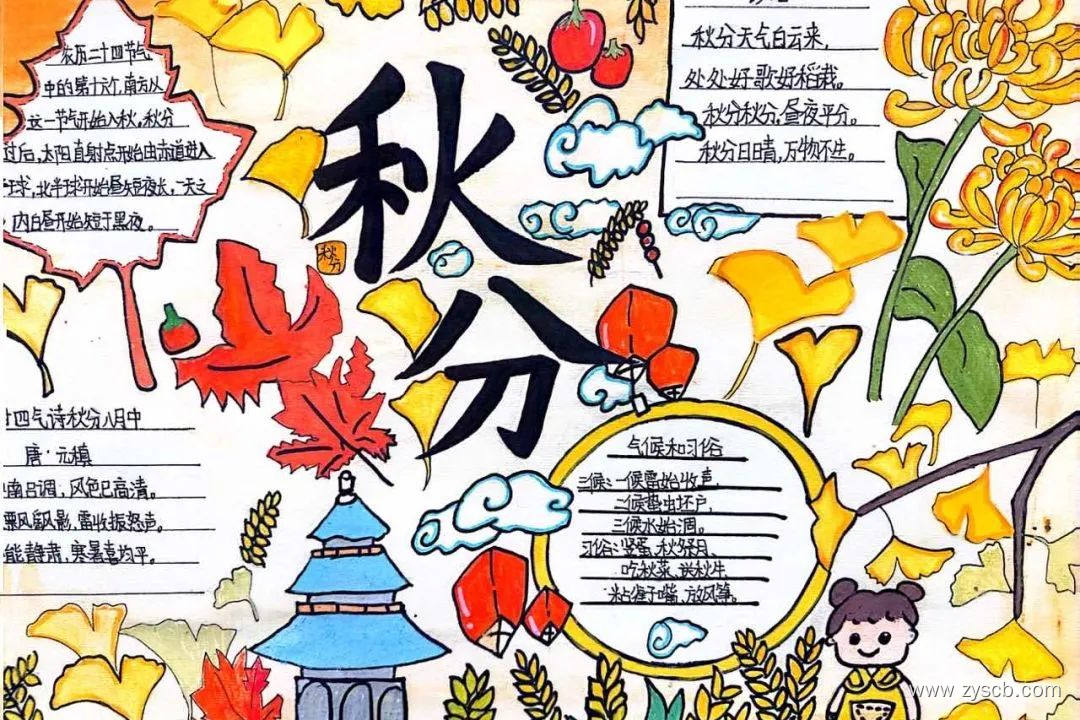 农历二十四节气
中的第十六个,南方从
这一节气开始入秋。秋分
过后,太阳直射点开始由赤道进入
球,北半球开始昼短夜长,一天之
内白昼开始短于黑夜。
秋分
秋分
秋分天气白云来,
处处好歌好稻栽。
秋分秋分,昼夜平分。
秋分日晴,万物不生。
四气诗秋分八月中
唐·元稹
南吕调,风色已高清。
飘风影,雷收振怒声。
能静肃,寒暑喜均平。
气候和习俗
三候:一候雷始收声,
二候蛰虫坯户,
三候水始涸。
习俗:竖蛋、秋祭月、
吃秋菜、送秋牛
粘雀子嘴、放风筝。
www.zyscb.com